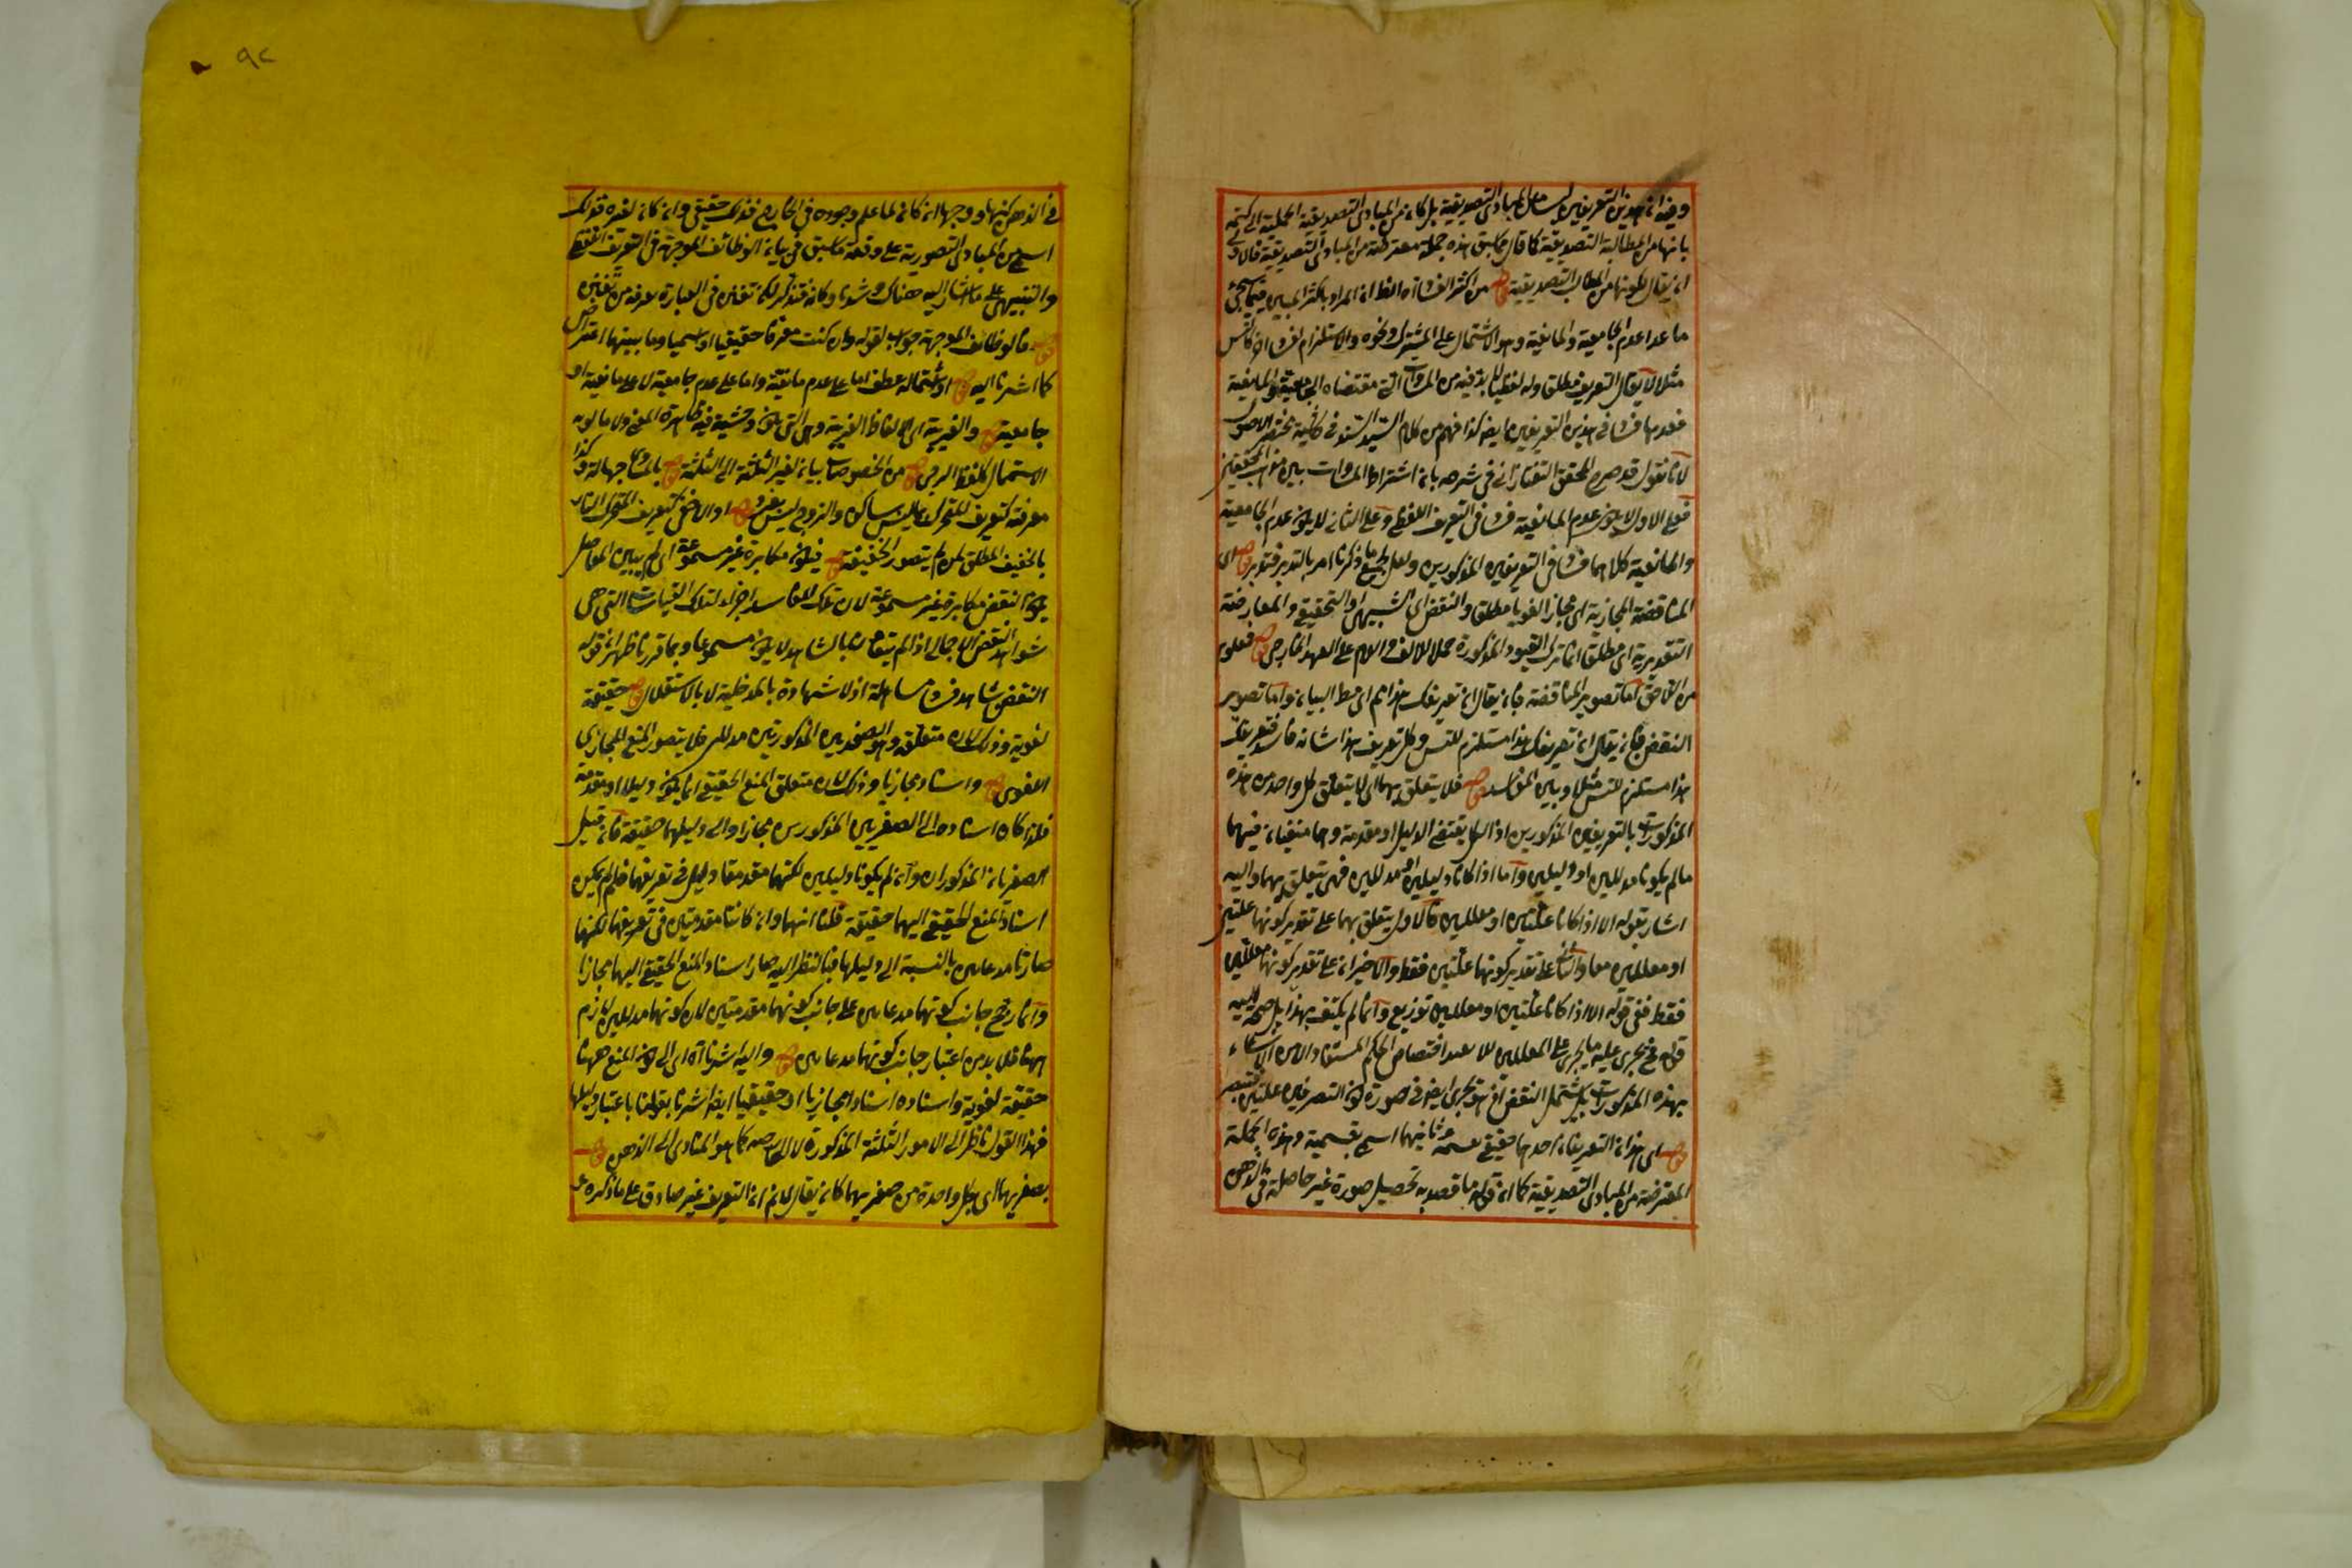 وفيه ان هذين التعريفين ليسا من المبادى التصديقية بل كانه من المبادى التصديقية الجملية
بانها من المطالب التصديقية كما قال فيما سبق هذه جملة معترضة من المبادى التصديقية فالاولى
ان يقال لكونها من المطالب التصديقية قوله من اكثر الفساد اه الظ ان المراد باكثر المبين فيما يجئ
ما عدا عدم الجامعية والمانعية وهو الاشتمال على المشترك ونحوه والاستلزام لفساد اخر كالتس
مثلا لا يقال التعريف مطلقا ولو لفظيا لا بد فيه من المساوات التى مقتضاه الجامعية والمانعية
فعدمها فساد فى هذين التعريفين ايضا كذا فهم من كلام السيد السند فى حاشية مختصر الاصول
لانا نقول قد صرح المحقق التفتازانى فى شرحه بان اشتراط المساوات بين مذهب المحققين
فعلى الاول لا يكون عدم المانعية فسادا فى التعريف اللفظى وعلى الثانى لا يكون عدم الجامعية
والمانعية كلاهما فسادا فى التعريفين المذكورين ولعل لجميع ما ذكرنا امر بالتدبر فتدبر قوله اى
المناقضة المجازية اى مجازا لغويا مطلقا والنقض اى الشبيهى او التحقيقى والمعارضة
التقديرية اى مطلقا انما ترك القيود المذكورة حملا للالف واللام على العهد الخارجى قوله فعلى
اما تصوير المناقضة فبان يقال ان تعريفك هذا مم اى مط البيان واما تصوير
النقض فبان يقال ان تعريفك هذا مستلزم للتس وكل تعريف هذا شانه فاسد فتعريفك
هذا مستلزم للتس مثلا وبين الفاسد قوله فلا يتعلق بهما اى لا يتعلق كل واحد من هذه
المذكورات بالتعريفين المذكورين اذ الكل يقتضى الدليل او مقدمة وهما منتفيان فيهما
ما لم يكونا مدللين او دليلين واما اذا كانا دليلين او مدللين فهى يتعلق بهما واليه
اشار بقوله الا اذا كانا علتين او معللين فالاول يتعلق بهما على تقدير كونهما علتين
او معللين معا والثانى على تقدير كونهما علتين فقط والاخيران على تقدير كونهما معللين
فقط ففى قوله الا اذا كانا علتين او معللين توزيع وانما لم يكتف بهذا بل
قوله فح يجرى عليه ما يجرى على المعللين لئلا اختصاص الحكم المستفاد من الاستثناء
بهذه المذكورات بل يشتمل النقض اذ هو يجرى ايضا فى صورة كون التعريفين علتين
قوله اى هذان التعريفان احدهما حقيقى بقسمه وثانيهما اسمى بقسميه وهذه الجملة
المعترضة من المبادى التصديقية كما ان قوله ما قصد به تحصيل صورة غير حاصلة فى الذهن
٩٢
فى الذهن كنهها او وجهها ان كان لما علم وجوده فى الخارج فذلك حقيقى وان كان لغيره فذلك
اسمى من المبادى التصورية على وقعه ما سبق فى بيان الوظائف الموجهة فى التعريف
والتنبيهى على ما اشار اليه هناك وكانه قد تذكر لكن تغير فى العبارة
قوله فالوظائف الموجهة جواب لقوله وان كنت معرفا حقيقيا او اسميا وما بينهما اعتراض
كما اشرنا اليه قوله او اشتماله عطف اما على عدم مانعيته واما على عدم جامعيته لا على مانعيته او
جامعيته قوله والغريبة اى الالفاظ الغريبة وهى التى يكون وحشية غير ظاهرة المعنى ولا مانوسة
الاستعمال كلفظ قوله من الخصوصات بيان لغير الثلثة اى الثلثة قوله بالمساوى جهالة
معرفة كتعريف المتحرك بما ليس بساكن والزوج بما ليس بفرد قوله او الاخفى كتعريف
بالخفيف المطلق لمن لم يتصور الخفيف قوله فيكون مكابرة غير مسموعة اى لم يبين المفاصل
يكون النقض مكابرة غير مسموعة لان تلك المفاسد اجزاء لتلك القياسات التى هى
شواهد النقض الاجمالى اذا لم يتعاين بالشاهد لا يكون مسموعا وبما قررنا ظهر ان قوله
النقض بشاهد فساد مساهلة اذ لا شهادة بالمدخلية لا بالاستقلال قوله حقيقة
لغوية وذلك لان متعلقه وهو الصغريين المذكورتين مدللى فلا يتصور المنع المجازى
اللغوى قوله واسنادا مجازيا وذلك لان متعلق المنع الحقيقى انما يكون دليلا او مقدمة
فلذا كان اسناده الى الصغريين المذكورين مجازا والى دليلهما حقيقة فان قيل
الصغريان المذكوران وان لم يكونا دليلين لكنهما مقدمتا دليل فى تعريفهما فلم لم يكن
اسناد المنع الحقيقى اليهما حقيقة قلنا انهما وان كانتا مقدمتين فى تعريفهما لكنهما
صارتا مدعايين بالنسبة الى دليلهما فبالنظر اليه صار اسناد المنع الحقيقى اليهما مجازا
وانما رجح جانب كونهما مدعايين على جانب كونهما مقدمتين لان كونهما مدللين لازم
ههنا فلا بد من اعتبار جانب كونهما مدعايين قوله واليه اشرنا اه اى الى كون المنع ههنا
حقيقة لغوية واسناده اسنادا مجازيا او حقيقيا ايضا اشرنا بقولنا باعتبار دليلها
فهذا القول ناظر الى الامور الثلثة المذكورة لا الى كما هو المتبادر الى الذهن قوله
بصغريهما اى بكل واحدة من صغريهما كان يقال لا نم ان التعريف غير صادق على ما ذكره